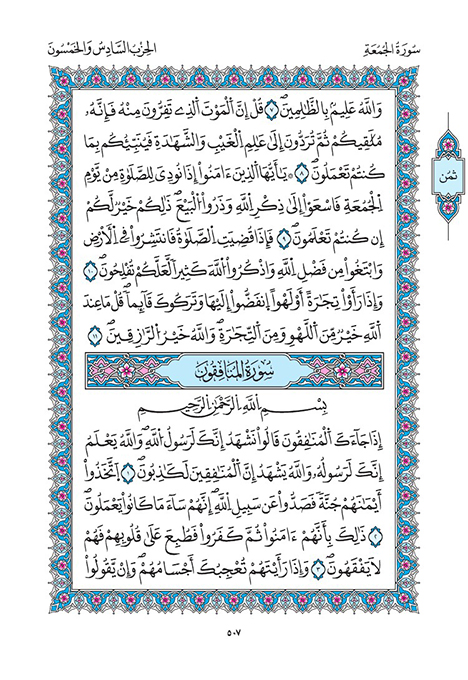 سُورَةُ الجُمُعَةِ
الحِزبُ السَّادِسُ وَالخَمْسُونَ
وَاللَّهُ عَلِيمٌ بِالظَّالِمِينَ ٧ قُلِ انَّ ٱلْمَوْتَ ٱلَّذِے تَفِرُّونَ مِنْهُ فَإِنَّهُۥ
مُلَٰقِيكُمْ ثُمَّ تُرَدُّونَ إِلَىٰ عَٰلِمِ ٱلْغَيْبِ وَٱلشَّهَٰدَةِ فَيُنَبِّئُكُم بِمَا
كُنتُمْ تَعْمَلُونَ ٨ يَٰأَيُّهَا ٱلَّذِينَ ءَامَنُوٓاْ إِذَا نُودِيَ لِلصَّلَوٰةِ مِنْ يَّوْمِ
ٱلْجُمُعَةِ فَاسْعَوِاْ اِلَىٰ ذِكْرِ ٱللَّهِ وَذَرُواْ ٱلْبَيْعَ ذَٰلِكُمْ خَيْرٌ لَّكُمُۥ
إِن كُنتُمْ تَعْلَمُونَ ٩ فَإِذَا قُضِيَتِ ٱلصَّلَوٰةُ فَانتَشِرُواْ فِے ٱلْأَرْضِ
وَٱبْتَغُواْ مِن فَضْلِ ٱللَّهِ وَٱذْكُرُواْ ٱللَّهَ كَثِيرًا لَّعَلَّكُمْ تُفْلِحُونَ ١٠
وَإِذَا رَأَوْاْ تِجَٰرَةً أَوْ لَهْوًا ٱنفَضُّوٓاْ إِلَيْهَا وَتَرَكُوكَ قَآئِمًا قُلْ مَا عِندَ
ٱللَّهِ خَيْرٌ مِّنَ ٱللَّهْوِ وَمِنَ ٱلتِّجَٰرَةِ وَٱللَّهُ خَيْرُ ٱلرَّٰزِقِينَ ١١
سُورَةُ المُنَافِقُونَ
بِسْمِ اللَّهِ الرَّحْمَٰنِ الرَّحِيمِ
إِذَا جَآءَكَ ٱلْمُنَٰفِقُونَ قَالُواْ نَشْهَدُ إِنَّكَ لَرَسُولُ ٱللَّهِ وَٱللَّهُ يَعْلَمُ
إِنَّكَ لَرَسُولُهُۥ وَٱللَّهُ يَشْهَدُ إِنَّ ٱلْمُنَٰفِقِينَ لَكَٰذِبُونَ ١ اَ۪تَّخَذُوٓاْ
أَيْمَٰنَهُمْ جُنَّةً فَصَدُّواْ عَن سَبِيلِ ٱللَّهِ إِنَّهُمْ سَآءَ مَا كَانُواْ يَعْمَلُونَ
٢ ذَٰلِكَ بِأَنَّهُمُۥٓ ءَامَنُواْ ثُمَّ كَفَرُواْ فَطُبِعَ عَلَىٰ قُلُوبِهِمْ فَهُمْ
لَا يَفْقَهُونَ ٣ وَإِذَا رَأَيْتَهُمْ تُعْجِبُكَ أَجْسَامُهُمْ وَإِنْ يَّقُولُواْ
ثُمُن
٥٠٧